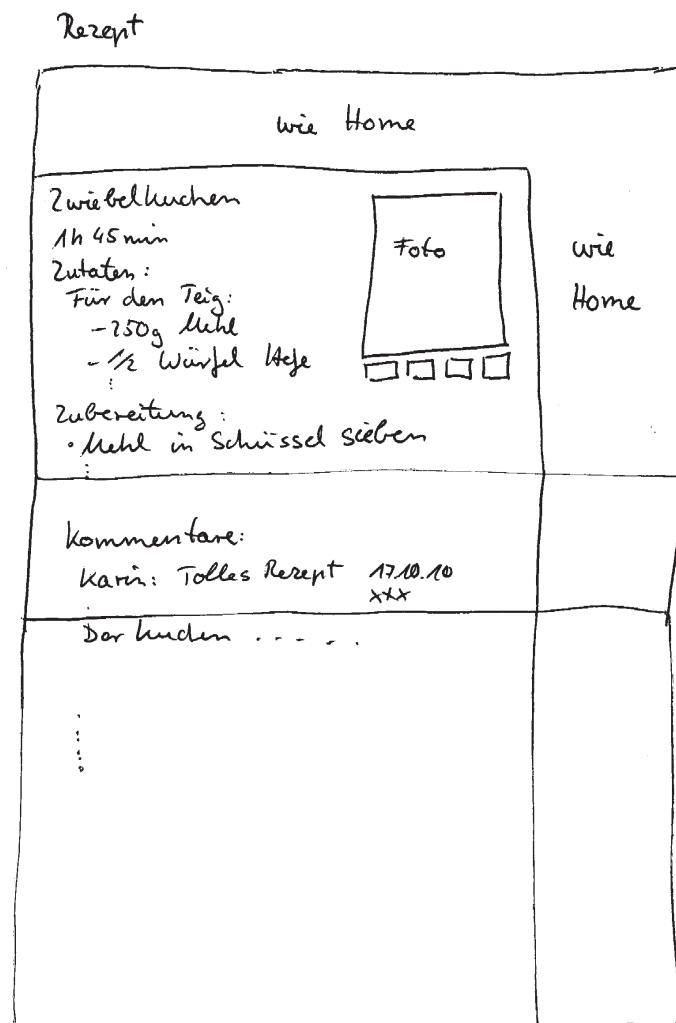 Rezept
wie Home
Zwiebelkuchen
1h 45min
Zutaten:
Für den Teig:
- 250g Mehl
- 1/2 Würfel Hefe
Foto
wie
Home
Zubereitung:
• Mehl in Schüssel sieben
Kommentare:
Karin: Tolles Rezept 17.10.10
xxx
Der Kuchen . . . . .